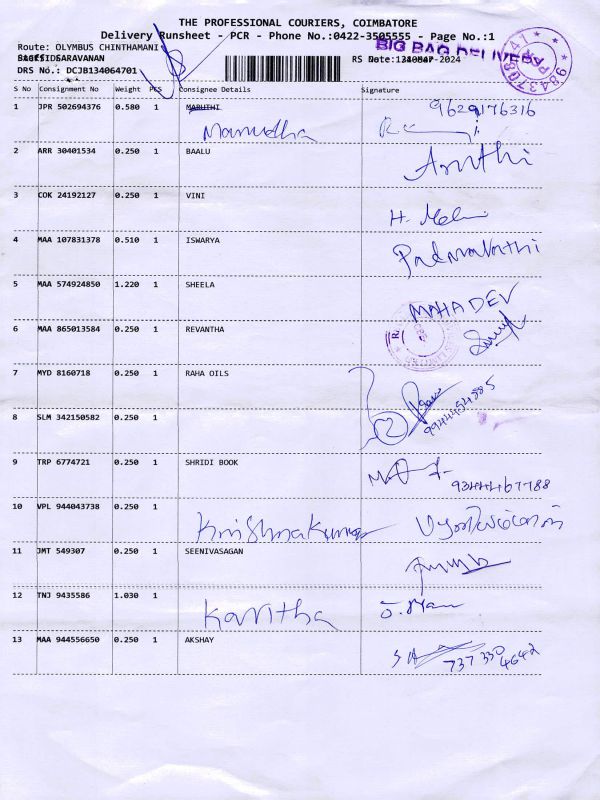 THE PROFESSIONAL COURIERS, COIMBATORE
Delivery Runsheet - PCR - Phone No.:0422-3505555 - Page No.:1
Route: OLYMBUS CHINTHAMANI
BIG BAG DELIVERY
SARAVANAN
RS No.:
-2024
DRS No.: DCJB134064701
S No Consignment No Weight PCS Consignee Details Signature
1 JPR 502694376 0.580 1 MARUTHI 9629176316
Manudha
2 ARR 30401534 0.250 1 BAALU Aruthi
3 COK 24192127 0.250 1 VINI
4 MAA 107831378 0.510 1 ISWARYA Padmavathi
5 MAA 574924850 1.220 1 SHEELA MAHADEV
6 MAA 865013584 0.250 1 REVANTHA
7 MYD 8160718 0.250 1 RAHA OILS
9944454885
8 SLM 342150582 0.250 1
9 TRP 6774721 0.250 1 SHRIDI BOOK
9344467788
10 VPL 944043738 0.250 1 Krishnakumar
11 JMT 549307 0.250 1 SEENIVASAGAN
12 TNJ 9435586 1.030 1 Kavitha
13 MAA 944556650 0.250 1 AKSHAY
737 330 4642